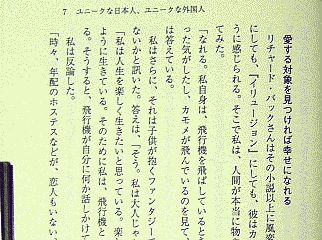 7 ユニークな日本人、ユニークな外国人
愛する対象を見つければ幸せになれる
リチャード・バックさんはその小説以上に風変
にしても、『イリュージョン』にしても、彼はカ
うに感じられる。そこで私は、人間が本当に物
てみた。
「なれる。私自身は、飛行機を飛ばしていると
った気がしたし、カモメが飛んでいるのを見て、
は答えている。
私はさらに、それは子供が抱くファンタジーで
ないかと訊いた。答えは、「そう。私は大人じゃ
「私は人生を楽しく生きたいと思っている。楽し
ように生きている。そのために私は、飛行機と
る。そうすると、飛行機が自分に何か話しかけて
私は反論した。
「時々、年配のホステスなどが、恋人もいない